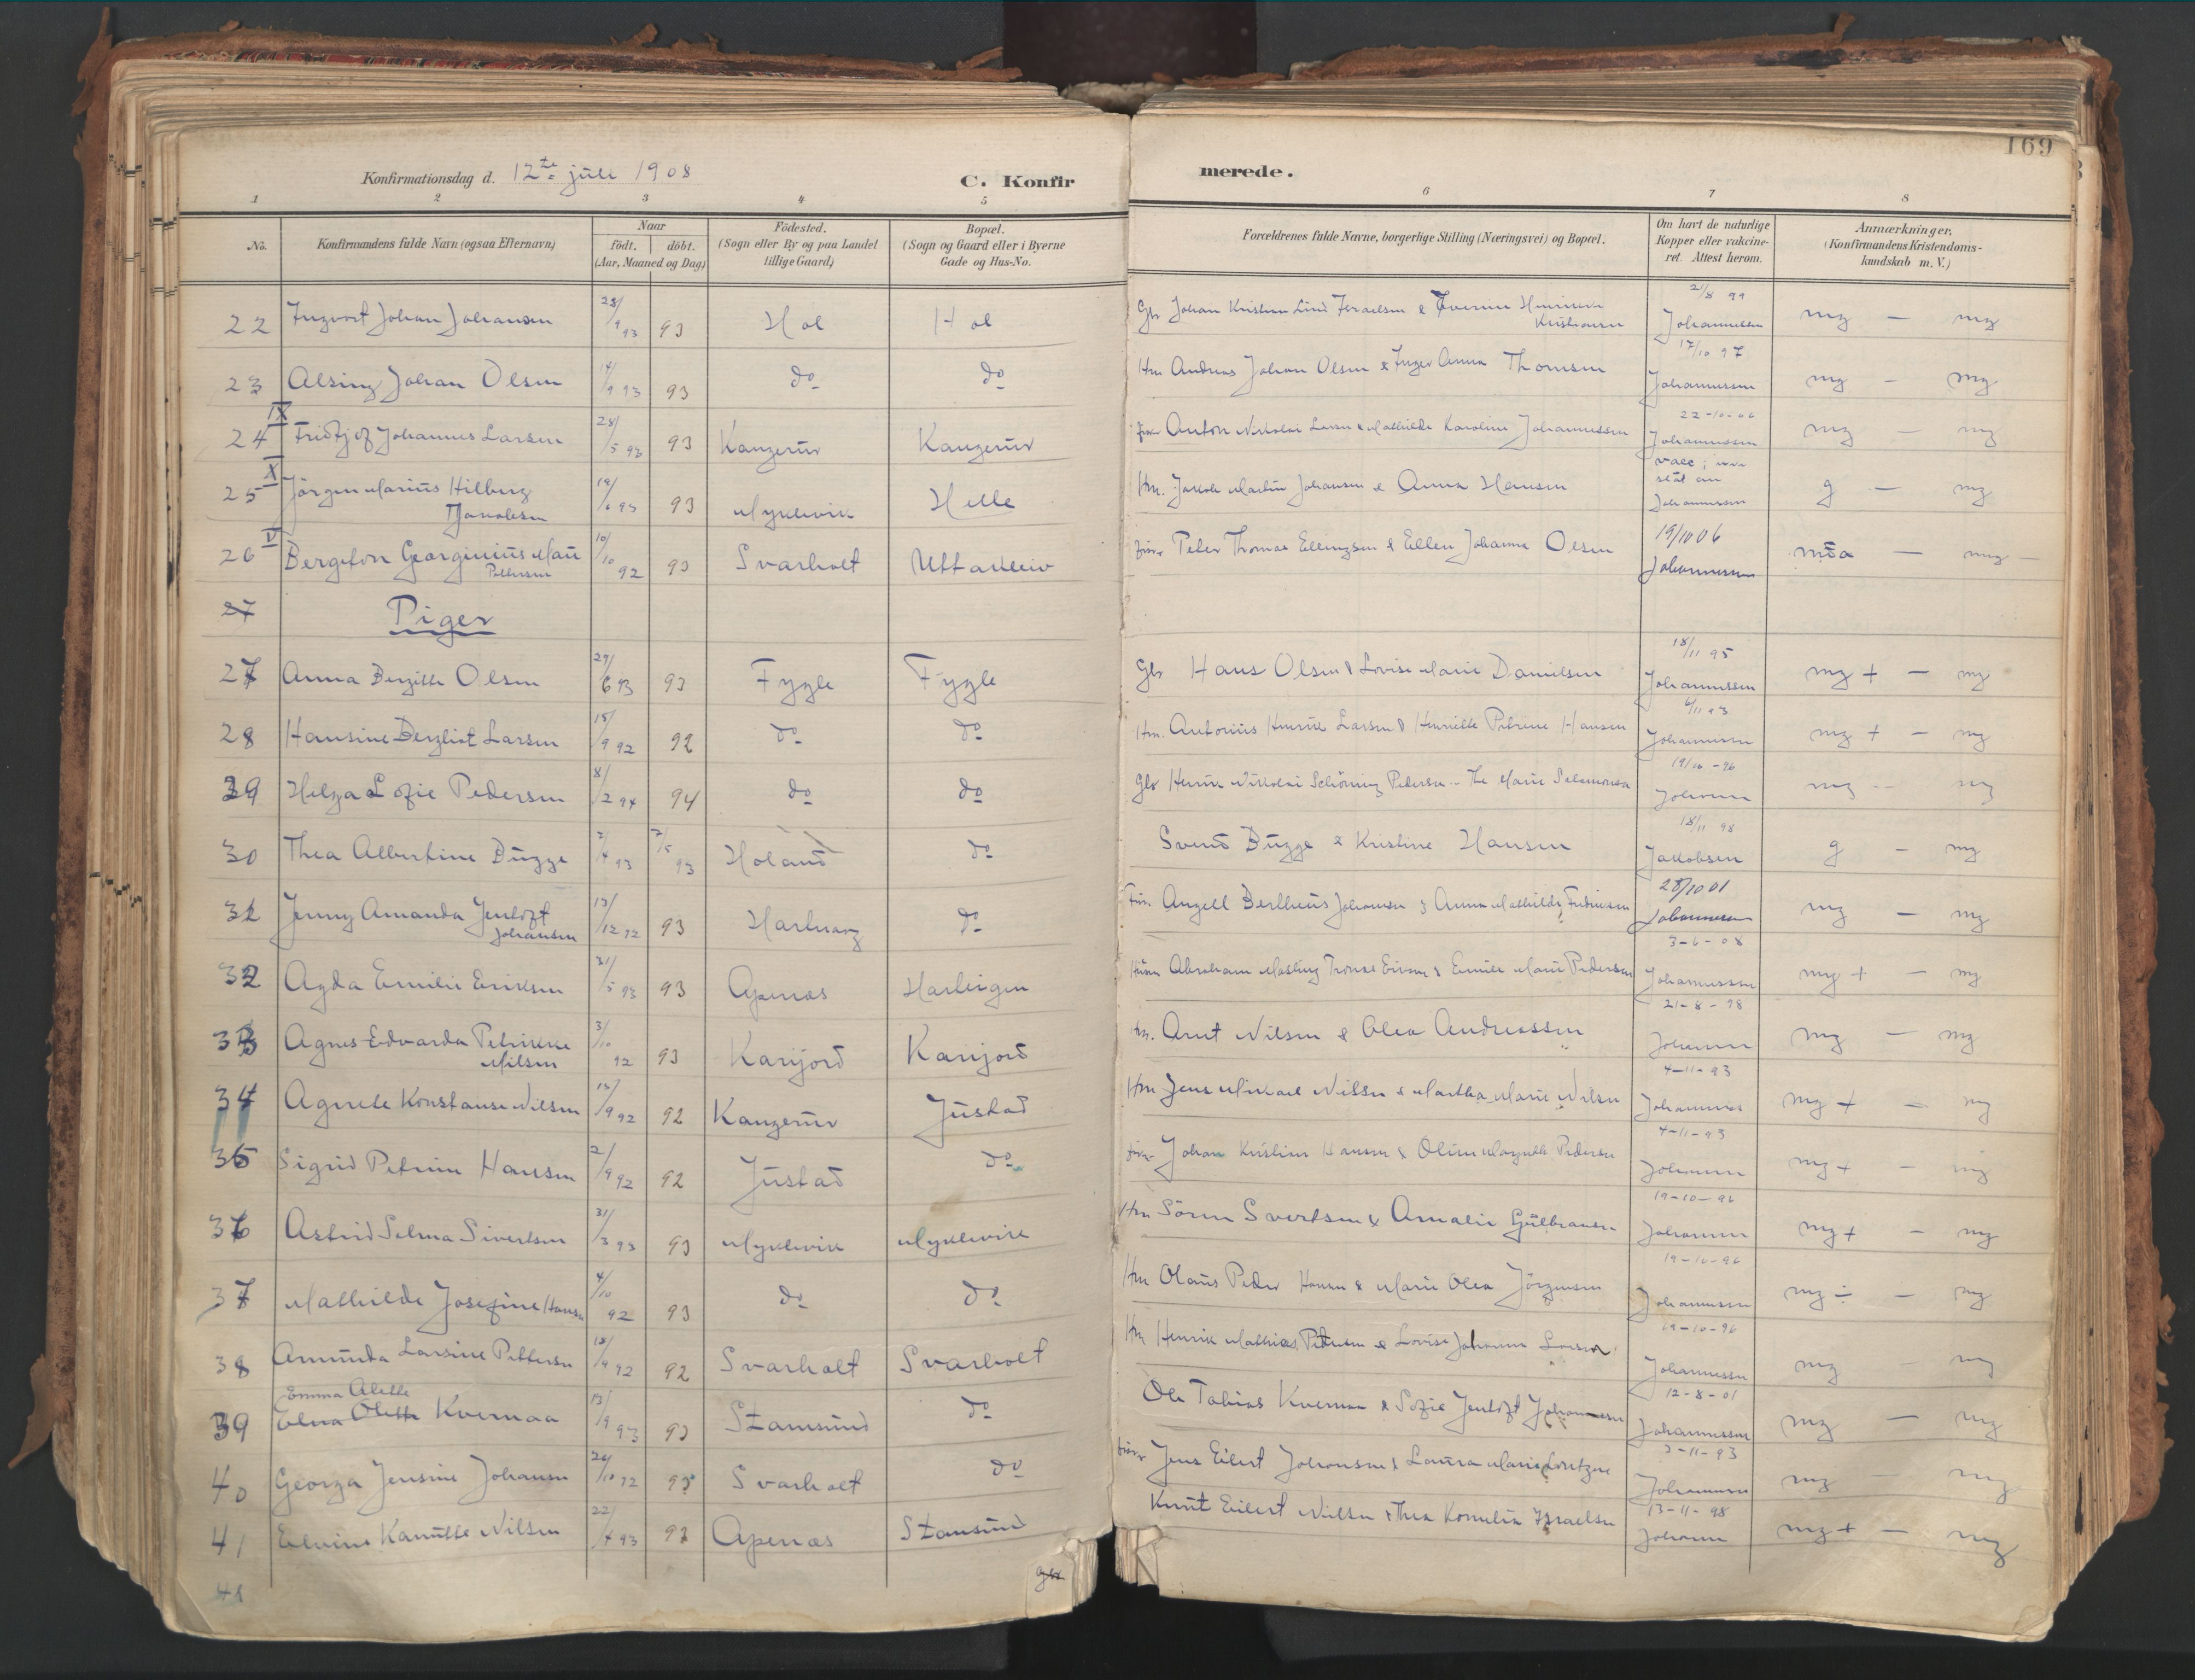 169
Konfirmationsdag d. 12te juli 1908
C. Konfirmerede.
1 2 3 4 5 6 7 8
No. Konfirmandens fulde Navn (ogsaa Efternavn) Naar födt. döbt. (Aar, Maaned og Dag) Födested. (Sogn eller By og paa Landet tillige Gaard) Bopæl. (Sogn og Gaard eller i Byerne Gade og Hus-No. Forældrenes fulde Navne, borgerlige Stilling (Næringsvei) og Bopæl. Om havt de naturlige Kopper eller vakcineret. Attest herom. Anmærkninger, (Konfirmandens Kristendomskundskab m. V.)
22 Ingvart Johan Johansen 28/9 93 93 Hol Hol Gbr Johan Kristian Lind Israelsen & Henrikke Kristiansen 2/8 99 Johannessen mg — mg
23 Alsing Johan Olsen 14/9 93 93 do do Hm Andreas Johan Olsen & Inger Anna Thomsen 17/10 97 Johannessen mg — mg
24 IX Fridtjof Johannes Larsen 28/5 93 93 Kangerur Kangerur Anton Nikolai Larsen & Mathilde Karoline Johannessen 22-10-06 Johannessen mg — mg
25 X Jörgen Marius Hilberg Jakobsen 19/6 93 93 Myklevik Helle Hm. Jakob Martin Johansen & Anna Hansen vacc; Johannessen g — mg
26 V Georginius Mari Pettersen 10/10 92 93 Svarholt Uttakleiv Peter Thomas Ellingsen & Ellen Johanna Olsen 19/10 06 Johannessen — mg
27
Piger
27 Anna Bergitte Olsen 29/6 93 93 Fygle Fygle Gbr Hans Olsen & Lovise Marie Danielsen 18/11 95 Johannessen mg + — mg
28 Hansine Bergliot Larsen 15/9 92 92 do do Hm. Antonius Henrik Larsen & Henriette Petrine Hansen 4/11 93 Johannessen mg + — mg
29 Helga Sofie Pedersen 8/2 94 94 do do Gbr Henrik Nikolai Schöning Pedersen - The Marie Salomonsen 19/10 -96 Johannessen mg - mg
30 Thea Albertine Bugge 2/4 93 7/5 93 Holand do Svend Bugge & Kristine Hansen 18/11 98 Jakobsen g — mg
31 Jenny Amanda Jentoft Johansen 13/12 92 93 do Angell Bertheus Johansen & Anna Mathilde 28/10 01 Johannessen mg — mg
32 Agda Emilie Eriksen 31/5 93 93 Apenæs Abraham & Emilie Marie Pedersen 3-6-08 Johannessen mg + — mg
33 Agnes Edvarda Petrikke Nilsen 3/10 92 93 Karijord Karijord Hm. Arnt Nilsen & Olea Andreassen 21-8-98 Johannessen mg — mg
34 Agnete Konstanse Nilsen 13/9 92 92 Kangerur Justad Hm Jens Mikael Nilsen & Martha Marie Nilsen 4-11-93 Johannessen mg + — mg
35 Sigrid Petrine Hansen 2/9 92 92 Justad do Johan Kristian Hansen & Oline Margrethe Pedersen 4-11-93 Johannessen mg + — mg
36 Astrid Selma Sivertsen 31/3 93 93 Myklevik Myklevik Hm Sören Sivertsen & Amalie Gulbransen 19-10-96 Johannessen mg + — mg
37 Mathilde Josefine Hansen 4/10 92 93 do do Hm Olaus Peder Hansen & Marie Olea Jörgensen 19-10-96 Johannessen mg ÷ — mg
38 Amunda Larsine Pettersen 18/9 92 92 Svarholt Svarholt Hm Henrik Mathias Petersen & Lovise Johanna Larsen 19-10-96 Johannessen mg — mg
39 Emma Alette Elna Olette Kvernaa 13/9 93 93 Stamsund do Ole Tobias Kvernaa & Sofie Jentoft Johannessen 12-8-01 Johannessen mg — mg
40 Georga Jensine Johansen 26/10 92 93 Svarholt do Jens Eilert Johansen & Laura Marie Lorentzen 3-11-93 Johannessen mg — mg
41 Elvine Kamille Nilsen 22/4 93 93 Apenæs Stamsund Knut Eilert Nilsen & Thea Kornelia Israelsen 13-11-98 Johannessen mg + — mg
41
Gbr